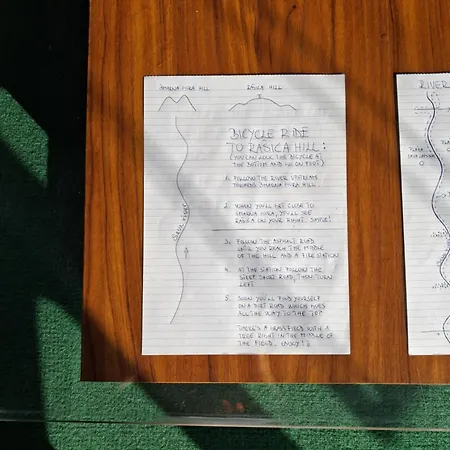 ŠMARNA GORA HILL
RAŠICA HILL
BICYCLE RIDE
TO RASICA HILL:
(YOU CAN LOCK THE BICYCLE AT
THE BOTTOM AND GO ON FOOT)
1. FOLLOW THE RIVER UPSTREAM
TOWARDS ŠMARNA GORA HILL
2. WHEN YOU'LL GET CLOSE TO
ŠMARNA GORA, YOU'LL SEE
RAŠICA ON YOUR RIGHT. SIMPLE!
3. FOLLOW THE ASPHALT ROAD
UNTIL YOU REACH THE MIDDLE
OF THE HILL AND A FIRE STATION
4. AT THE STATION FOLLOW THE
STEEP SHORT ROAD, THEN TURN
LEFT
5. SOON YOU'LL FIND YOURSELF
ON A DIRT ROAD WHICH GOES
ALL THE WAY TO THE TOP
THERE'S A GRASSFIELD WITH A
TREE RIGHT IN THE MIDDLE OF
THE FIELD... ENJOY!
RIVER